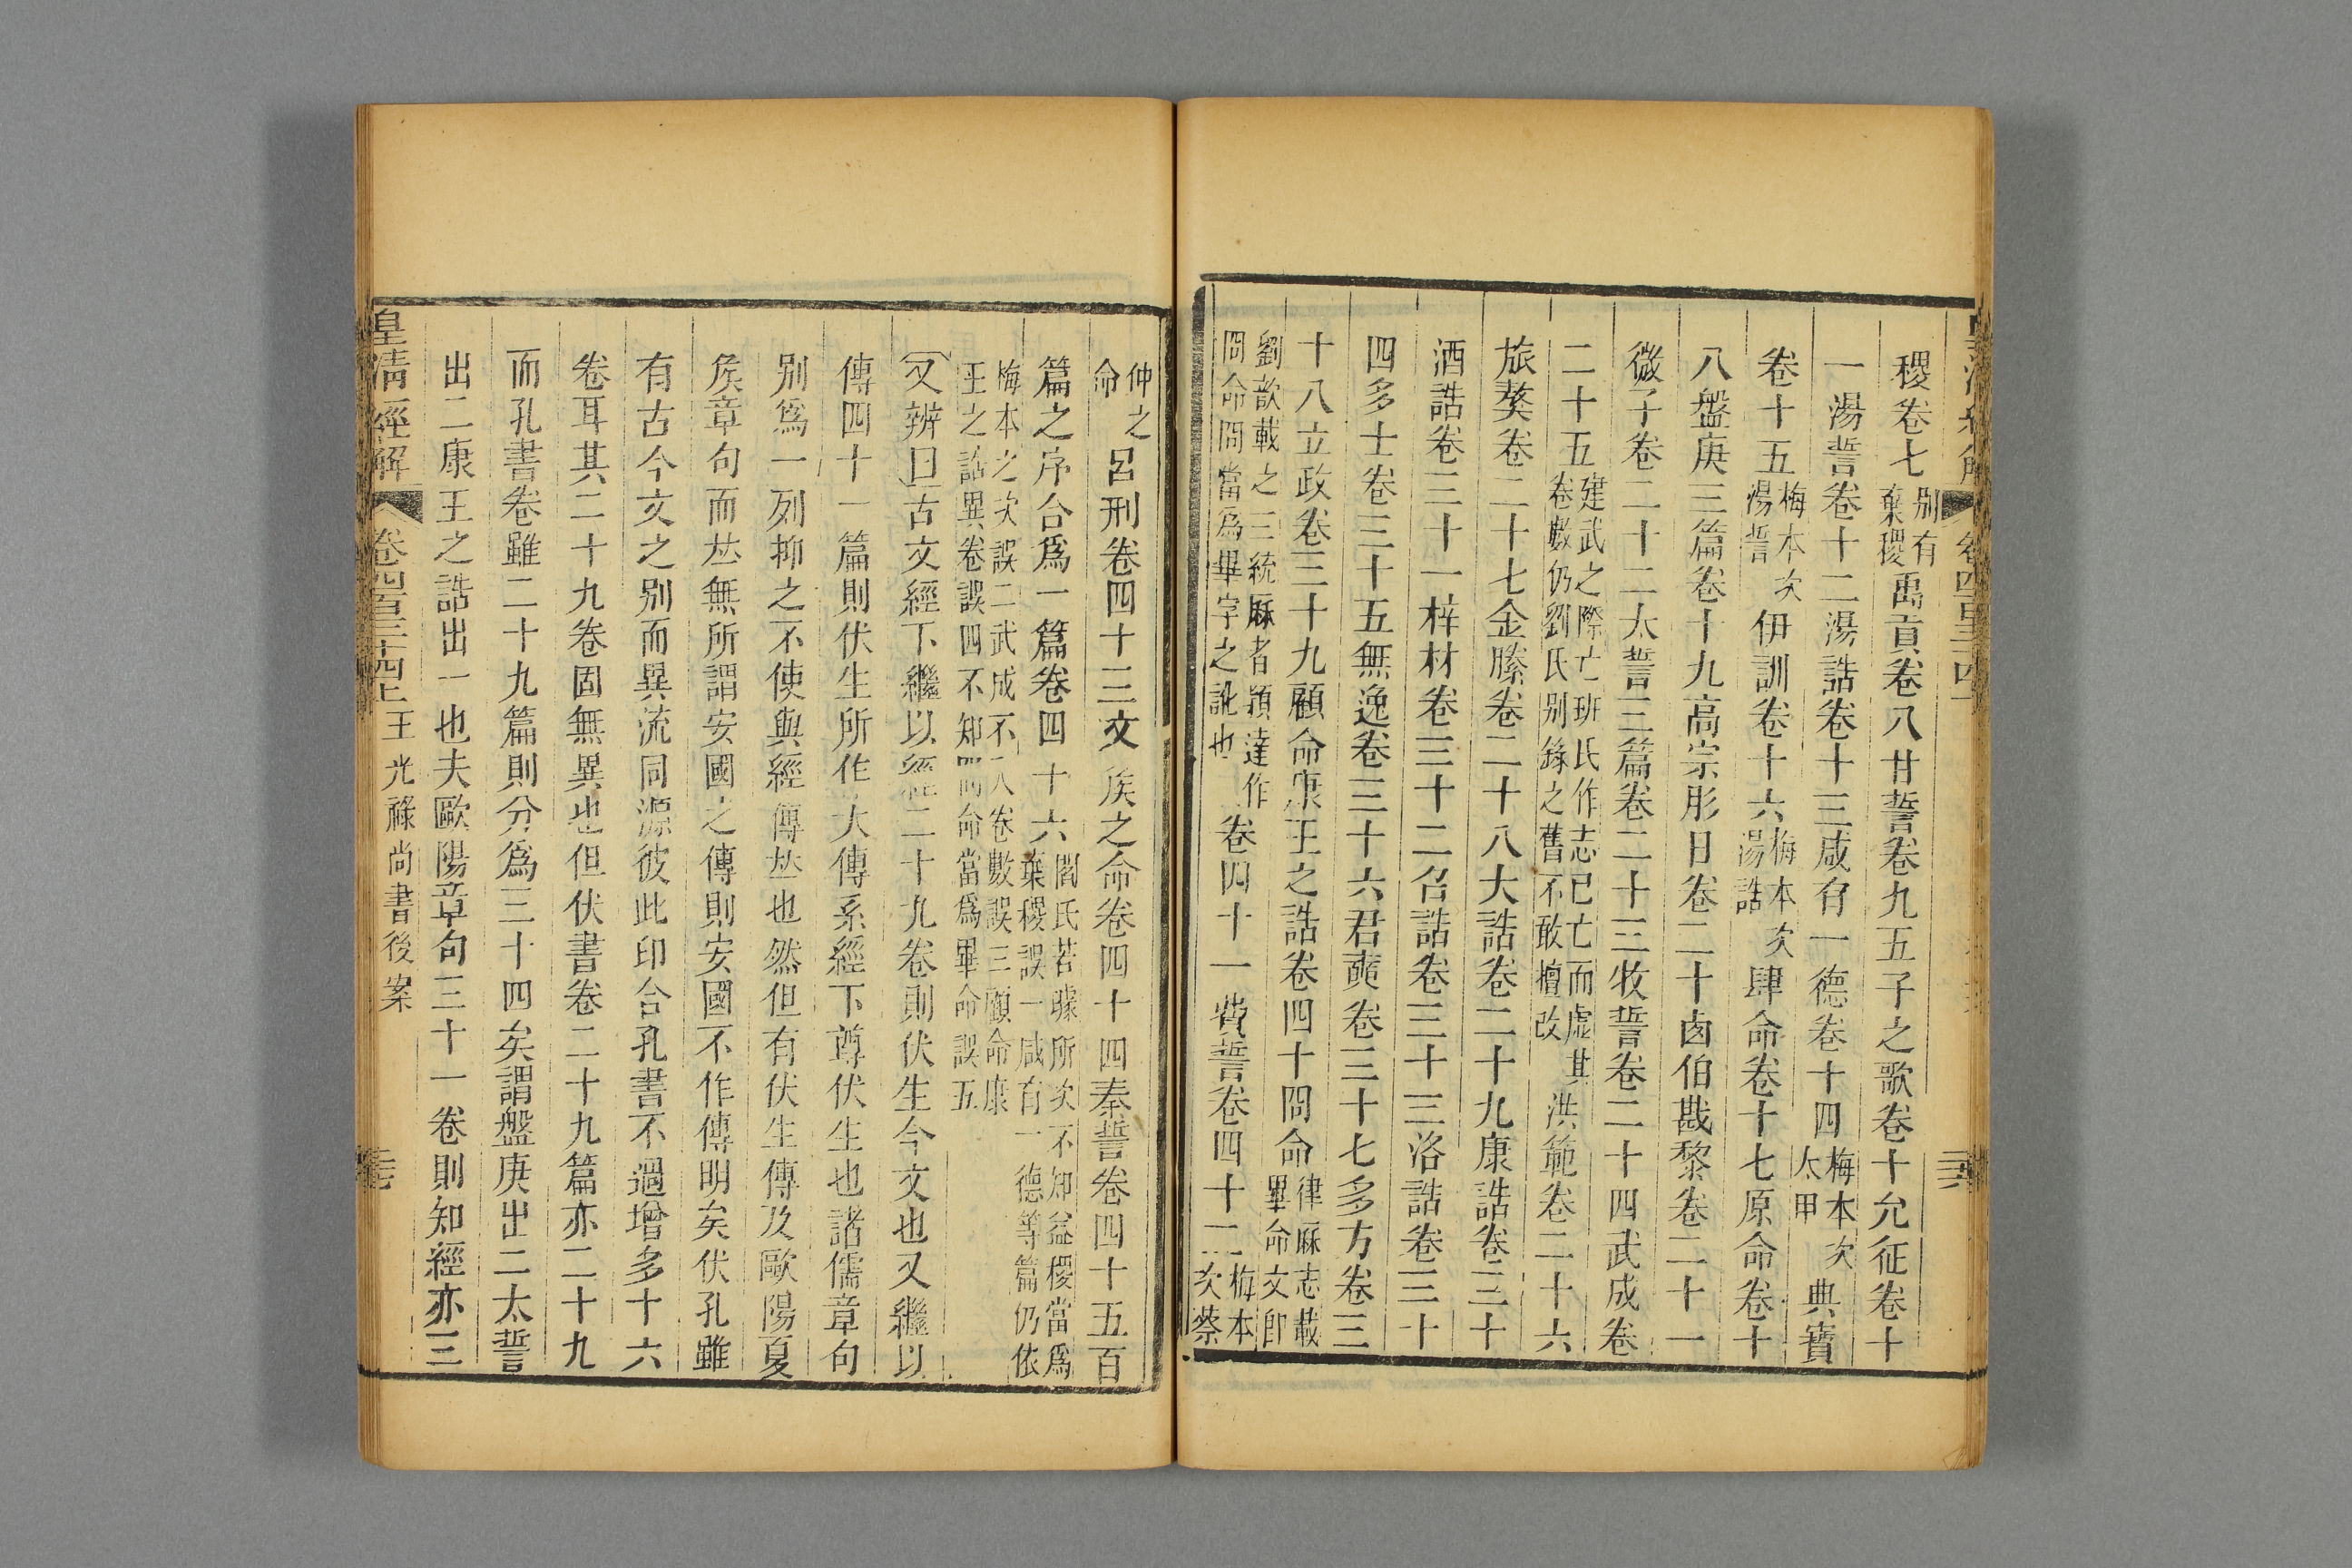 稷卷七别有棄稷禹貢卷八甘誓卷九五子之歌卷十允征卷十
一湯誓卷十二湯誥卷十三咸有一德卷十四梅本次太甲典寶
卷十五梅本次湯誓伊訓卷十六梅本次湯誥肆命卷十七原命卷十
八盤庚三篇卷十九高宗肜日卷二十卤伯戡黎卷二十一
微子卷二十二太誓三篇卷二十三牧誓卷二十四武成卷
二十五建武之際亡班氏作志已亡而虛其卷數仍劉氏别錄之舊不敢擅改洪範卷二十六
旅獒卷二十七金縢卷二十八大誥卷二十九康誥卷三十
酒誥卷三十一梓材卷三十二召誥卷三十三洛誥卷三十
四多士卷三十五無逸卷三十六君奭卷三十七多方卷三
十八立政卷三十九顧命康王之誥卷四十冏命律厤志載畢命文卽
劉歆載之三統厤者穎達作冏命冏當爲畢字之訛也卷四十一費誓卷四十二梅本次蔡
仲之命呂刑卷四十三文矦之命卷四十四秦誓卷四十五百
篇之序合爲一篇卷四十六閻氏若璩所次不知益稷當爲棄稷誤一咸有一德等篇仍依
梅本之次誤二武成不入卷數誤三顧命康王之誥異卷誤四不知冏命當爲畢命誤五
又辨曰古文經下繼以經二十九卷則伏生今文也又繼以
傳四十一篇則伏生所作大傳系經下尊伏生也諸儒章句
别爲一列抑之不使與經傳㘴也然但有伏生傳及歐陽夏
矦章句而㘴無所謂安國之傳則安國不作傳明矣伏孔雖
有古今文之别而異流同源彼此印合孔書不過增多十六
卷耳其二十九卷固無異也但伏書卷二十九篇亦二十九
而孔書卷雖二十九篇則分爲三十四矣謂盤庚出二太誓
出二康王之誥出一也夫歐陽章句三十一卷則知經亦三
皇清經解 卷四百三十四上 王光祿尚書後案